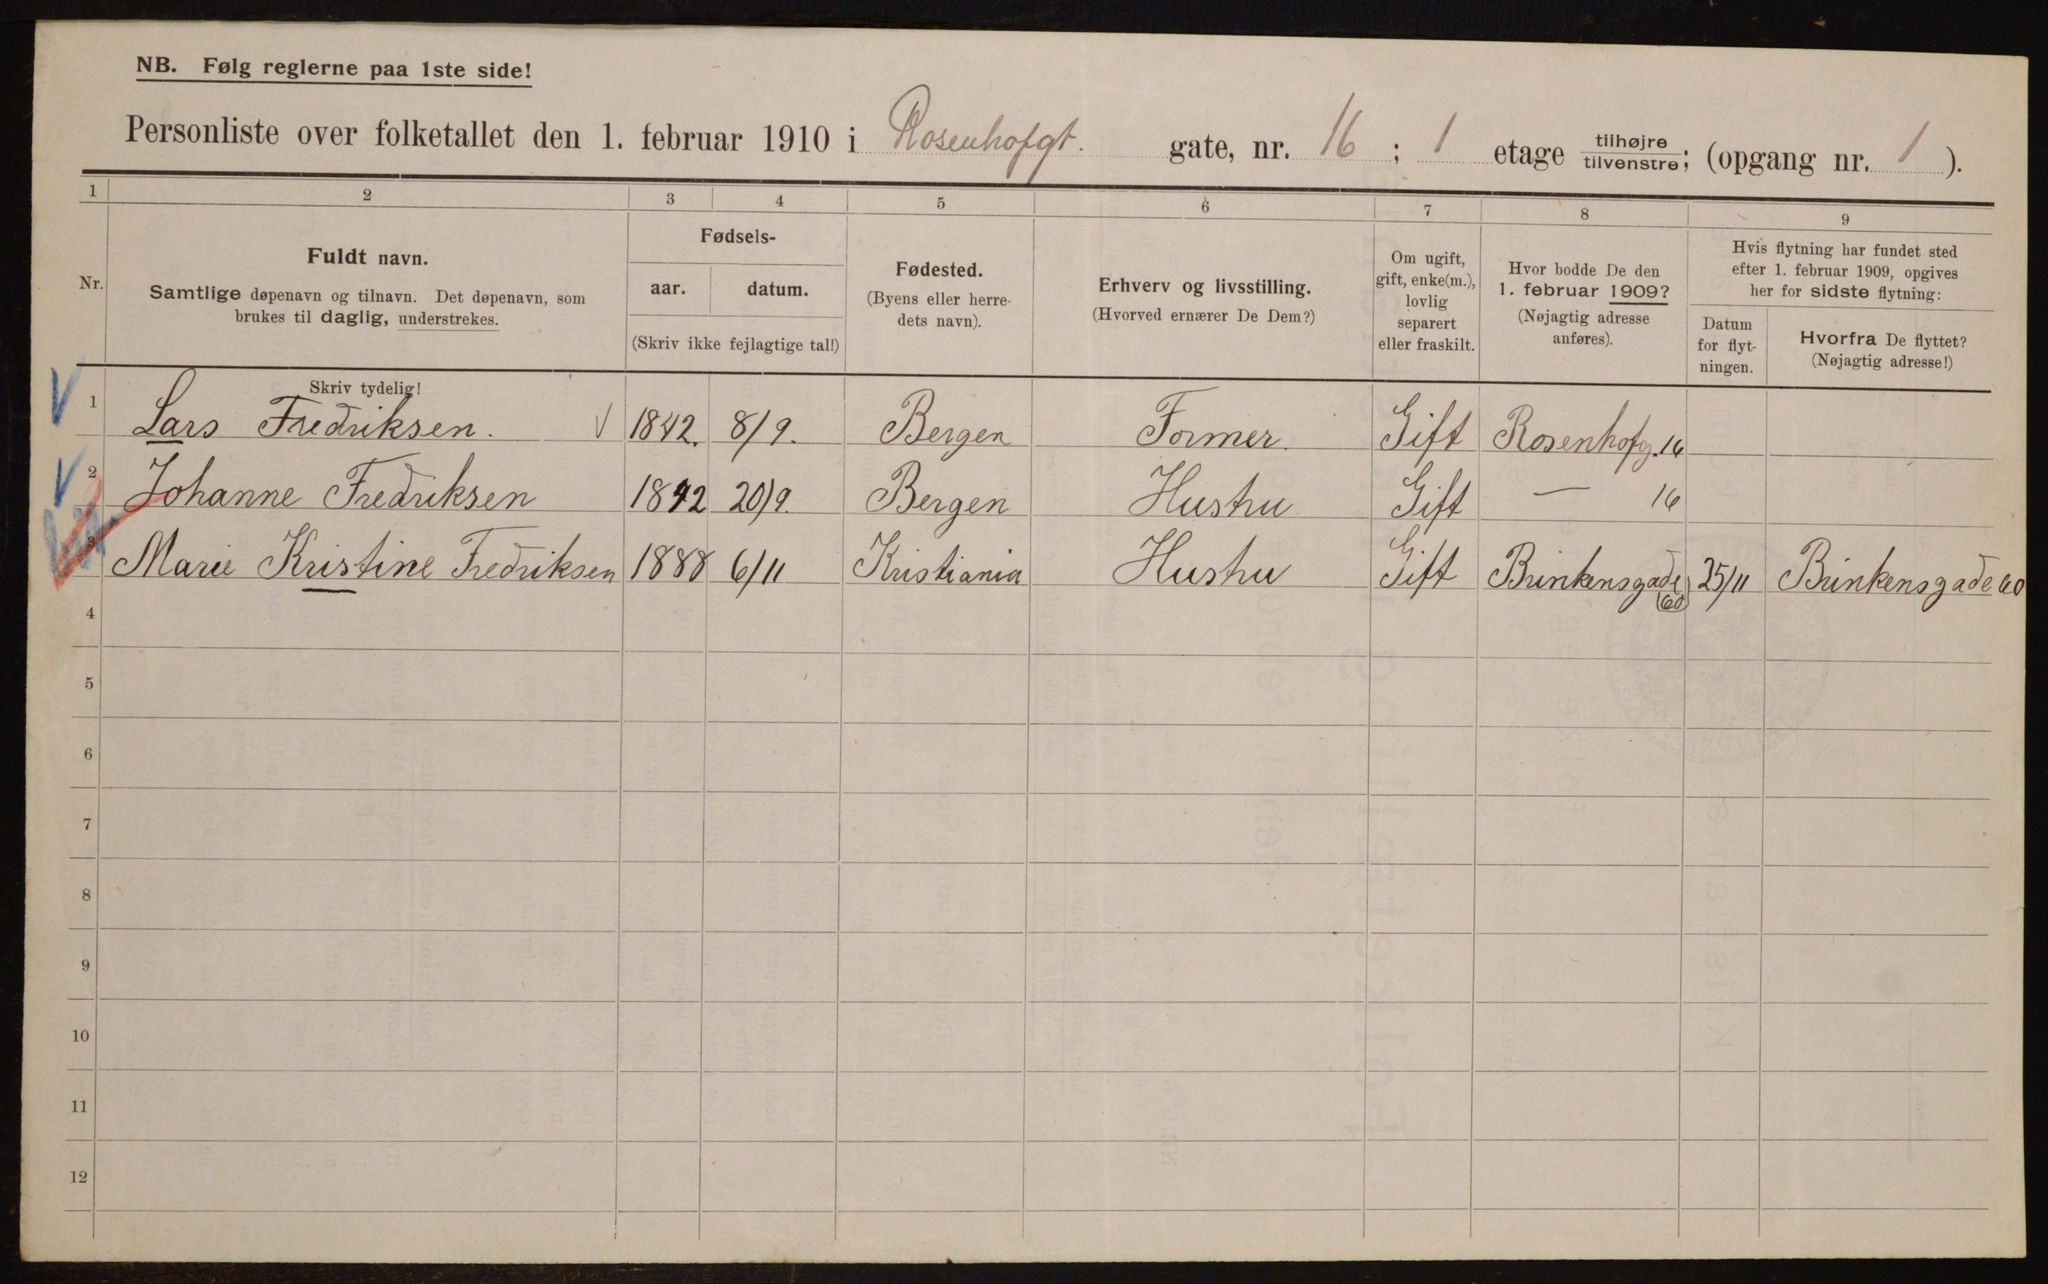 NB. Følg reglerne paa 1ste side!
Personliste over folketallet den 1. februar 1910 i Rosenhofgt. gate, nr. 16 ; 1 etage tilhøjre/tilvenstre; (opgang nr. 1 ).
1 2 3 4 5 6 7 8 9
Nr.
Fuldt navn.
Samtlige døpenavn og tilnavn. Det døpenavn, som
brukes til daglig, understrekes.
Skriv tydelig!
Fødsels-
aar. datum.
(Skriv ikke fejlagtige tal!)
Fødested.
(Byens eller herre-
dets navn).
Erhverv og livsstilling.
(Hvorved ernærer De Dem?)
Om ugift,
gift, enke(m.),
lovlig
separert
eller fraskilt.
Hvor bodde De den
1. februar 1909?
(Nøjagtig adresse
anføres).
Hvis flytning har fundet sted
efter 1. februar 1909, opgives
her for sidste flytning:
Datum
for flyt-
ningen.
Hvorfra De flyttet?
(Nøjagtig adresse!)
1 Lars Fredriksen. 1842. 8/9. Bergen Former. Gift Rosenhofg. 16
2 Johanne Fredriksen 1842 20/9. Bergen Hustru Gift — 16
3 Marie Kristine Fredriksen 1888 6/11 Kristiania Hustru Gift Brinkensgade 60 25/11 Brinkensgade 60
4
5
6
7
8
9
10
11
12